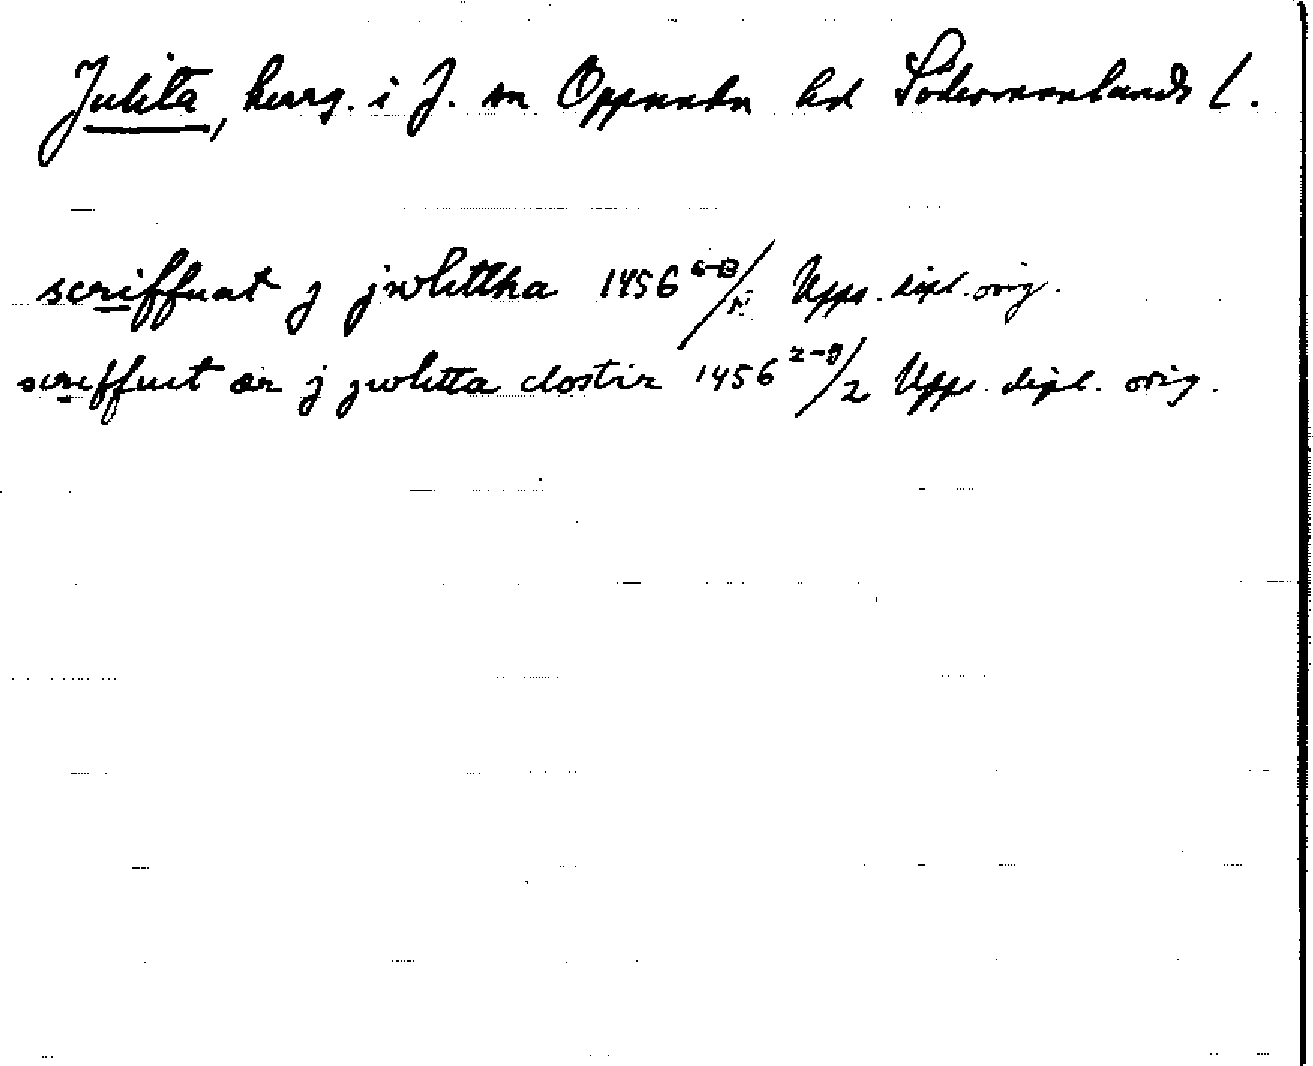 Julita, herrg. i J. sn Oppunda hd Södermanlands l.
scriffuat j jwlittha 1456 Upps. dipl. orig.
scriffuit ær j jwlitta clostir 1456 2-8/2 Upps. dipl. orig.